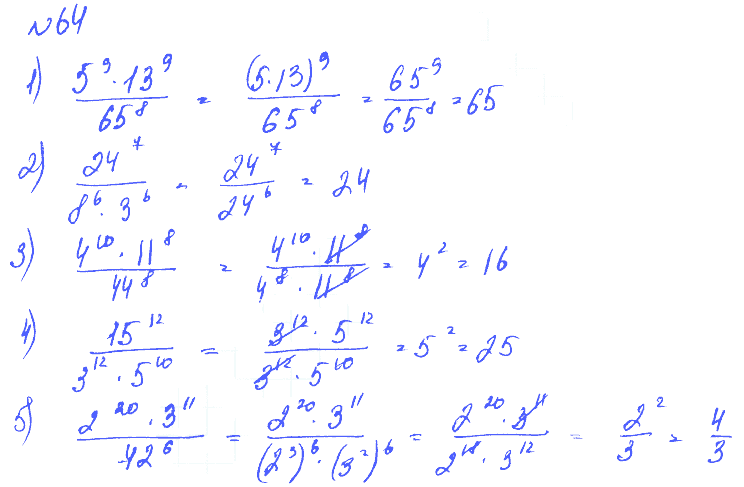 №64
1) \frac{5^9 · 13^9}{65^8} = \frac{(5·13)^9}{65^8} = \frac{65^9}{65^8} = 65
2) \frac{24^7}{8^6 · 3^6} = \frac{24^7}{24^6} = 24
3) \frac{4^{10} · 11^8}{44^8} = \frac{4^{10} · 11^8}{4^8 · 11^8} = 4^2 = 16
4) \frac{15^{12}}{3^{12} · 5^{10}} = \frac{3^{12} · 5^{12}}{3^{12} · 5^{10}} = 5^2 = 25
5) \frac{2^{20} · 3^{11}}{42^6} = \frac{2^{20} · 3^{11}}{(2^3)^6 · (3^2)^6} = \frac{2^{20} · 3^{11}}{2^{18} · 3^{12}} = \frac{2^2}{3} = \frac{4}{3}